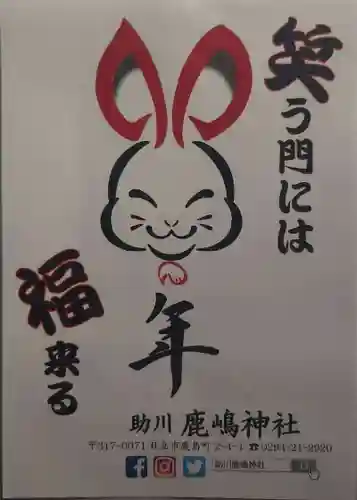 笑う門には
福来る
年
助川 鹿嶋神社
〒317-0071 日立市鹿島町 2-4-1 ☎0294-21-9920
助川鹿嶋神社